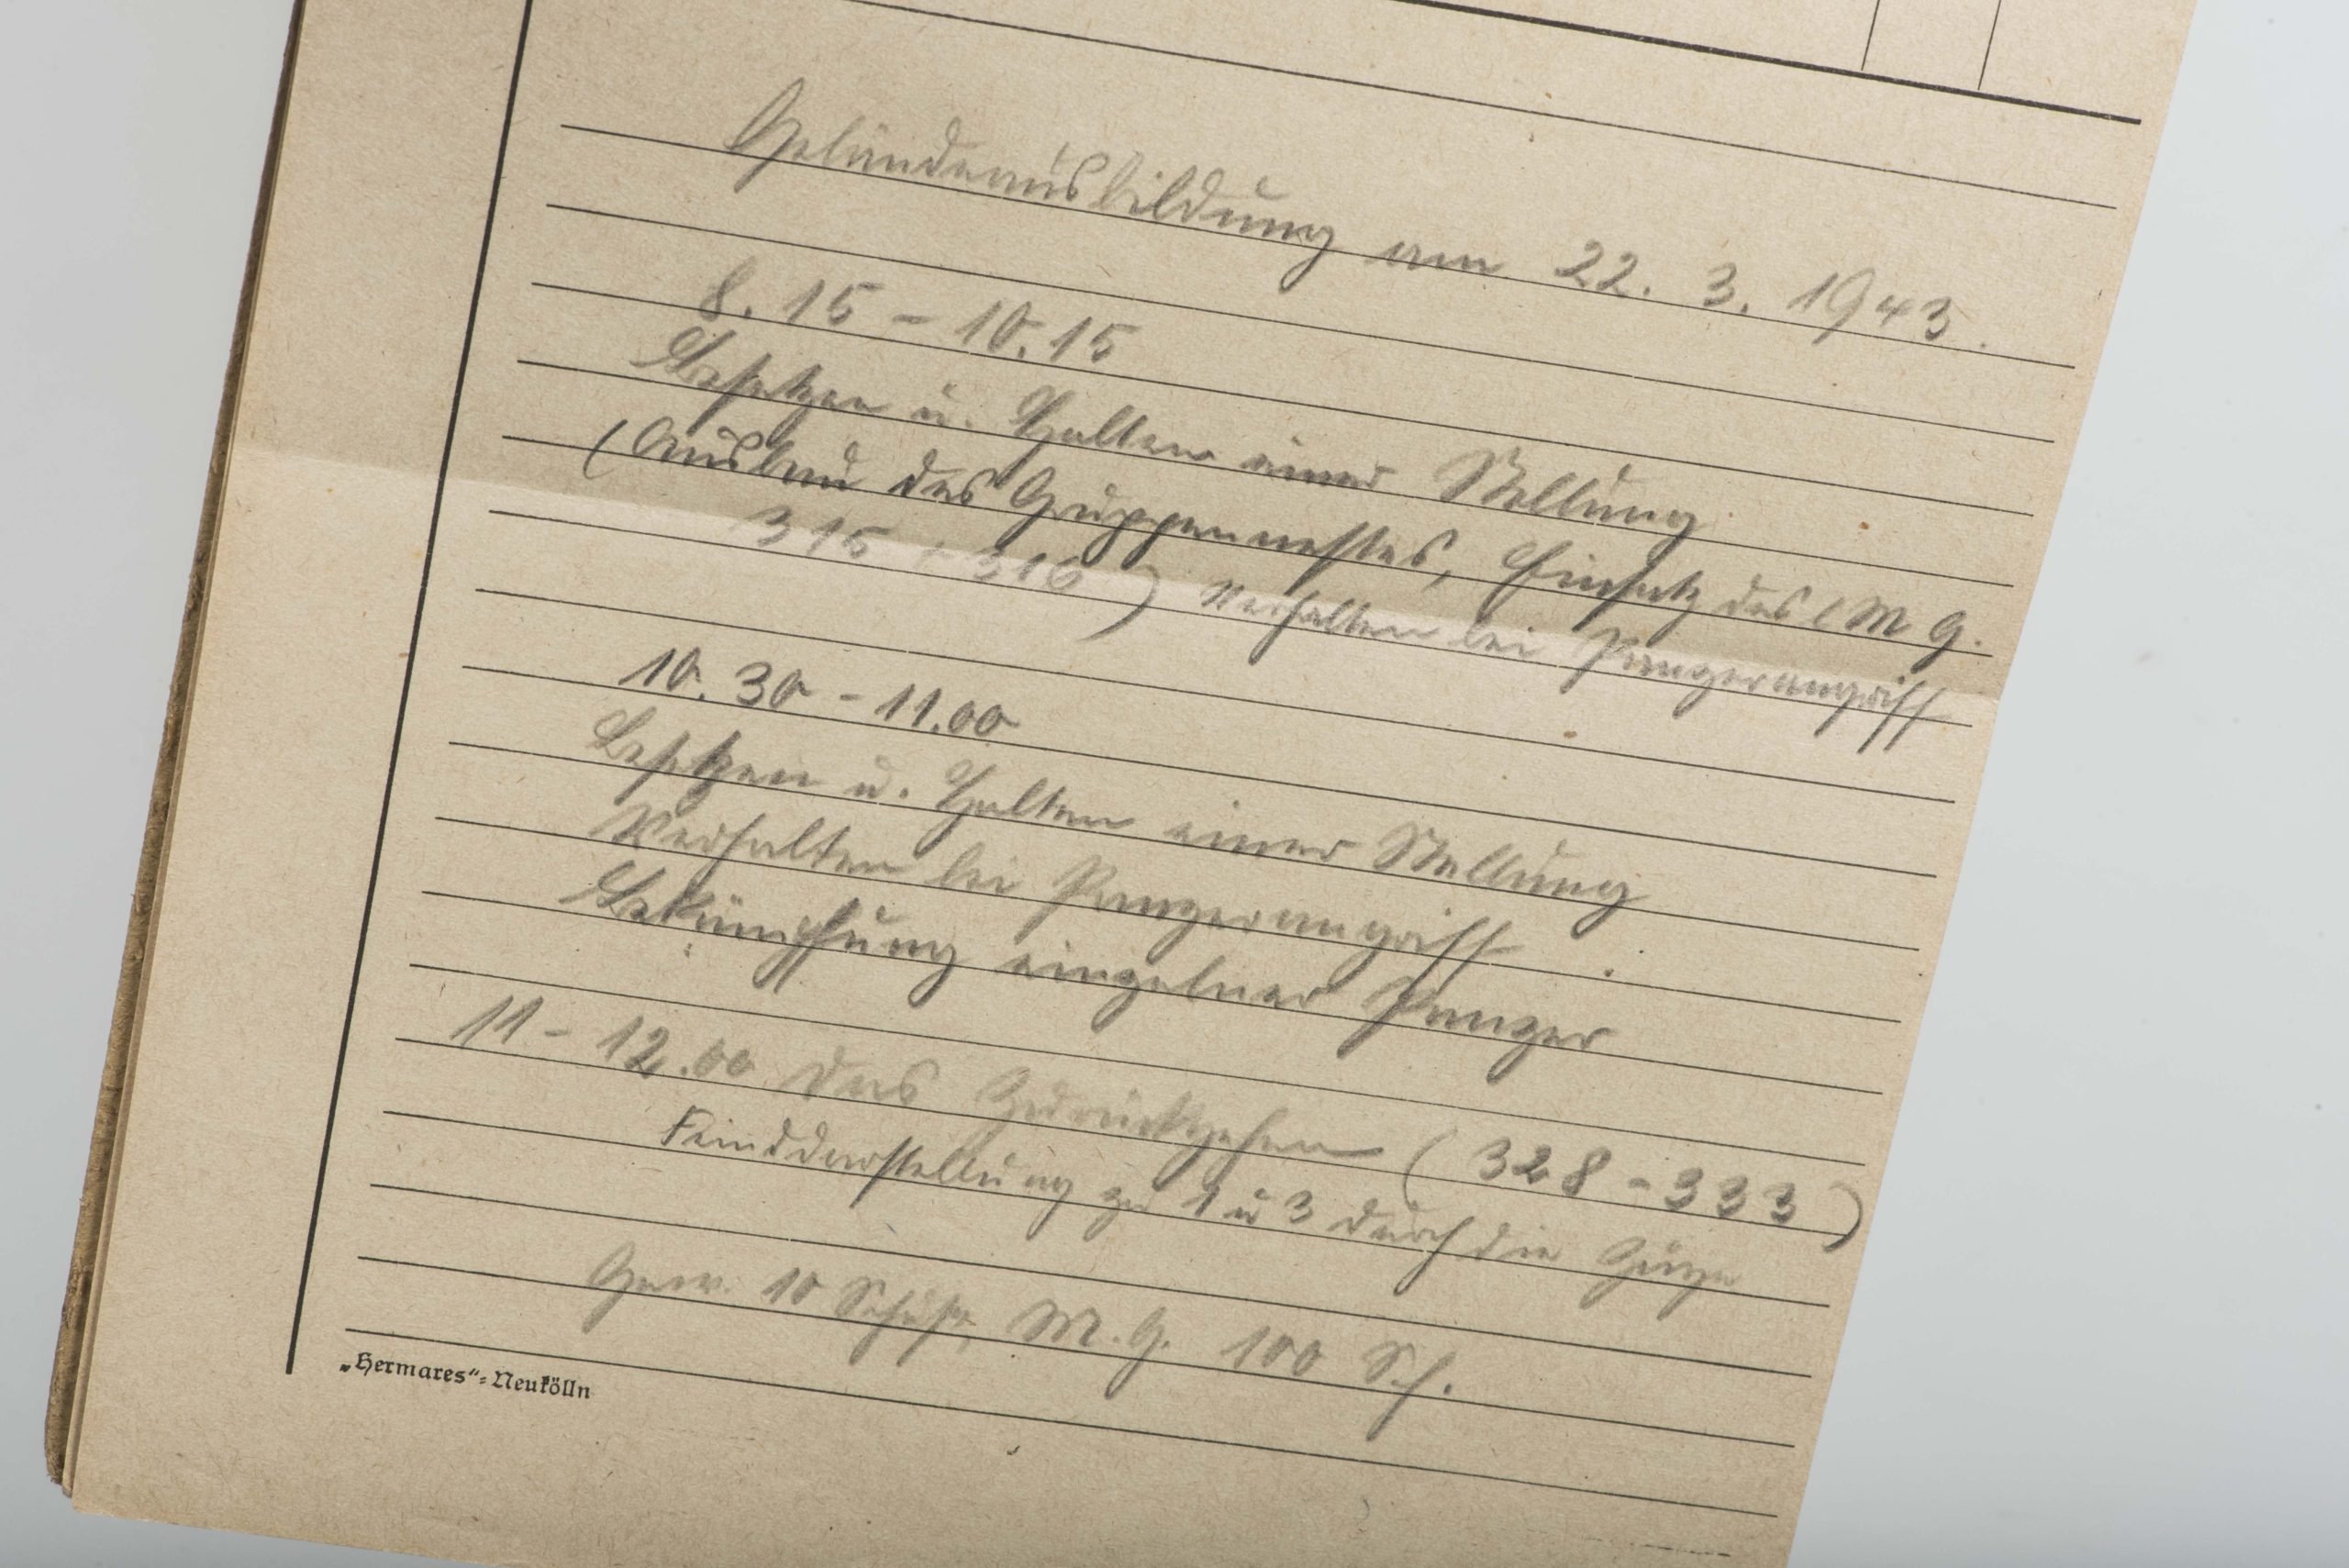 Geländeausbildung am 22. 3. 1943.
8.15 - 10.15
Besetzen u. Halten einer Stellung
(Ausbau des Gruppennestes, Einsatz des l M G.
315 + 316) Verhalten bei Panzerangriff
10.30 - 11.00
Besetzen u. Halten einer Stellung
Verhalten bei Panzerangriff
Bekämpfung einzelner Panzer
11 - 12.00 Das Zurückgehen (328 - 333)
Feinddarstellung zu 1 u 3 durch die
Gew. 10 Schuß, M. G. 100 Sch.
„Hermares"=Neukölln